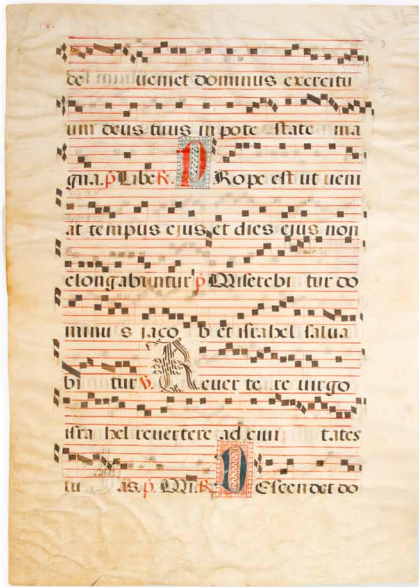 veniet dominus exercitu
um deus tuus in pote state ma
gna. p Libe R. PRope est ut veni
at tempus ejus et dies ejus non
elongabuntur p Miserebi tur do
minu s iaco b et israhel salva
bi tur V. Rever te re virgo
isra hel revertere ad civi tates
tu as. p. Mi. R. DEscendet do